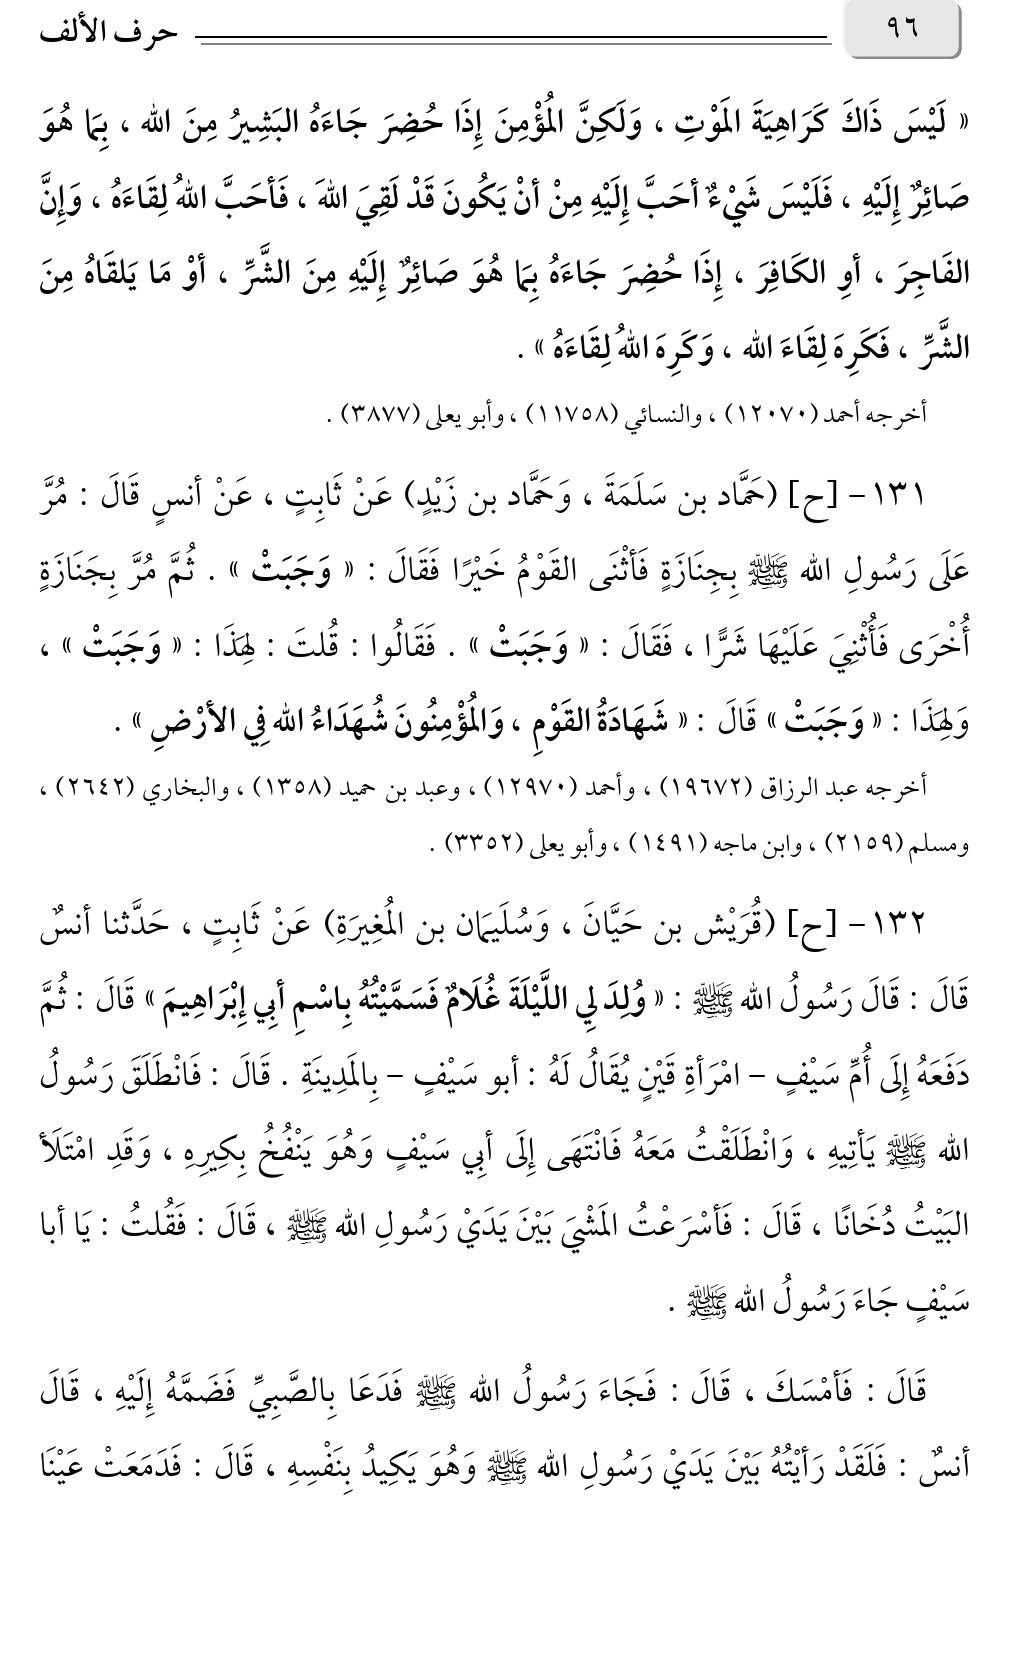 ٩٦
حرف الألف
« لَيْسَ ذَاكَ كَرَاهِيَةَ المَوْتِ ، وَلَكِنَّ المُؤْمِنَ إِذَا حُضِرَ جَاءَهُ البَشِيرُ مِنَ الله ، بِمَا هُوَ
صَائِرٌ إِلَيْهِ ، فَلَيْسَ شَيْءٌ أحَبَّ إِلَيْهِ مِنْ أنْ يَكُونَ قَدْ لَقِيَ اللهَ ، فَأحَبَّ اللهُ لِقَاءَهُ ، وَإِنَّ
الفَاجِرَ ، أوِ الكَافِرَ ، إِذَا حُضِرَ جَاءَهُ بِمَا هُوَ صَائِرٌ إِلَيْهِ مِنَ الشَّرِّ ، أوْ مَا يَلقَاهُ مِنَ
الشَّرِّ ، فَكَرِهَ لِقَاءَ الله ، وَكَرِهَ اللهُ لِقَاءَهُ » .
أخرجه أحمد (١٢٠٧٠) ، والنسائي (١١٧٥٨) ، وأبو يعلى (٣٨٧٧) .
١٣١- [ح] (حَمَّاد بن سَلَمَةَ ، وَحَمَّاد بن زَيْدٍ) عَنْ ثَابِتٍ ، عَنْ أنسٍ قَالَ : مُرَّ
عَلَى رَسُولِ الله ﷺ بِجِنَازَةٍ فَأثْنَى القَوْمُ خَيْرًا فَقَالَ : « وَجَبَتْ » . ثُمَّ مُرَّ بِجَنَازَةٍ
أُخْرَى فَأُثْنِيَ عَلَيْهَا شَرًّا ، فَقَالَ : « وَجَبَتْ » . فَقَالُوا : قُلتَ : لِهَذَا : « وَجَبَتْ » ،
وَلِهَذَا : « وَجَبَتْ » قَالَ : « شَهَادَةُ القَوْمِ ، وَالمُؤْمِنُونَ شُهَدَاءُ الله فِي الأرْضِ » .
أخرجه عبد الرزاق (١٩٦٧٢) ، وأحمد (١٢٩٧٠) ، وعبد بن حميد (١٣٥٨) ، والبخاري (٢٦٤٢) ،
ومسلم (٢١٥٩) ، وابن ماجه (١٤٩١) ، وأبو يعلى (٣٣٥٢) .
١٣٢- [ح] (قُرَيْش بن حَيَّانَ ، وَسُلَيَمَان بن المُغِيرَةِ) عَنْ ثَابِتٍ ، حَدَّثنا أنسٌ
قَالَ : قَالَ رَسُولُ الله ﷺ : « وُلِدَ لِي اللَّيْلَةَ غُلَامٌ فَسَمَّيْتُهُ بِاسْمِ أبِي إِبْرَاهِيمَ » قَالَ : ثُمَّ
دَفَعَهُ إِلَى أُمِّ سَيْفٍ - امْرَأةِ قَيْنٍ يُقَالُ لَهُ : أبو سَيْفٍ - بِالمَدِينَةِ . قَالَ : فَانْطَلَقَ رَسُولُ
الله ﷺ يَأتِيهِ ، وَانْطَلَقْتُ مَعَهُ فَانْتَهَى إِلَى أبِي سَيْفٍ وَهُوَ يَنْفُخُ بِكِيرِهِ ، وَقَدِ امْتَلَأ
البَيْتُ دُخَانًا ، قَالَ : فَأسْرَعْتُ المَشْيَ بَيْنَ يَدَيْ رَسُولِ الله ﷺ ، قَالَ : فَقُلتُ : يَا أبا
سَيْفٍ جَاءَ رَسُولُ الله ﷺ .
قَالَ : فَأمْسَكَ ، قَالَ : فَجَاءَ رَسُولُ الله ﷺ فَدَعَا بِالصَّبِيِّ فَضَمَّهُ إِلَيْهِ ، قَالَ
أنسٌ : فَلَقَدْ رَأيْتُهُ بَيْنَ يَدَيْ رَسُولِ الله ﷺ وَهُوَ يَكِيدُ بِنَفْسِهِ ، قَالَ : فَدَمَعَتْ عَيْنَا